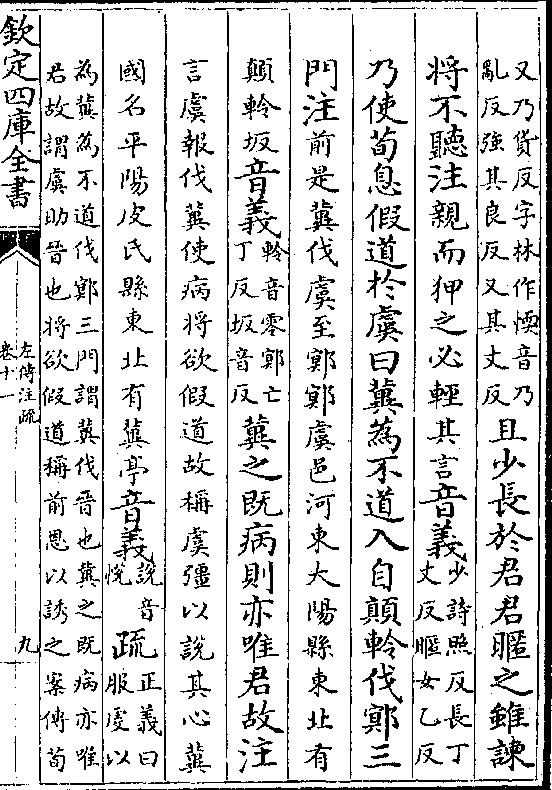 又乃貨反字林作愞音乃
亂反強其良反又其丈反
且少長於君君暱之雖諫
將不聽注親而狎之必輕其言音義
少詩照反長丁
丈反暱女乙反
乃使荀息假道於虞曰冀為不道入自顛軨伐鄍三
門注前是冀伐虞至鄍鄍虞邑河東大陽縣東北有
顛軨坂音義
軨音零鄍亡
丁反坂音反
冀之既病則亦唯君故注
言虞報伐冀使病將欲假道故稱虞彊以說其心冀
國名平陽皮氏縣東北有冀亭音義
說音
悅
疏
正義曰
服虔以
為冀為不道伐鄍三門謂冀伐晉也冀之既病亦唯
君故謂虞助晉也將欲假道稱前恩以誘之案傳荀
欽定四庫全書
左傳注疏
卷十一
九